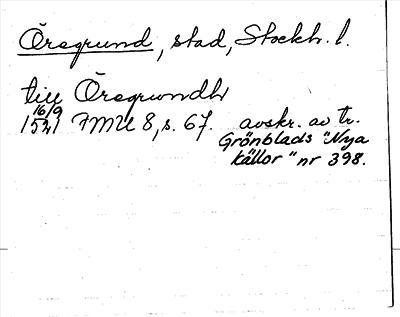 Öregrund, stad, Stockh. l.
till Öregrwndh
16/9
1521 FMU 8, s. 67. avskr. av tr.
Grönblads "Nya
källor" nr 398.